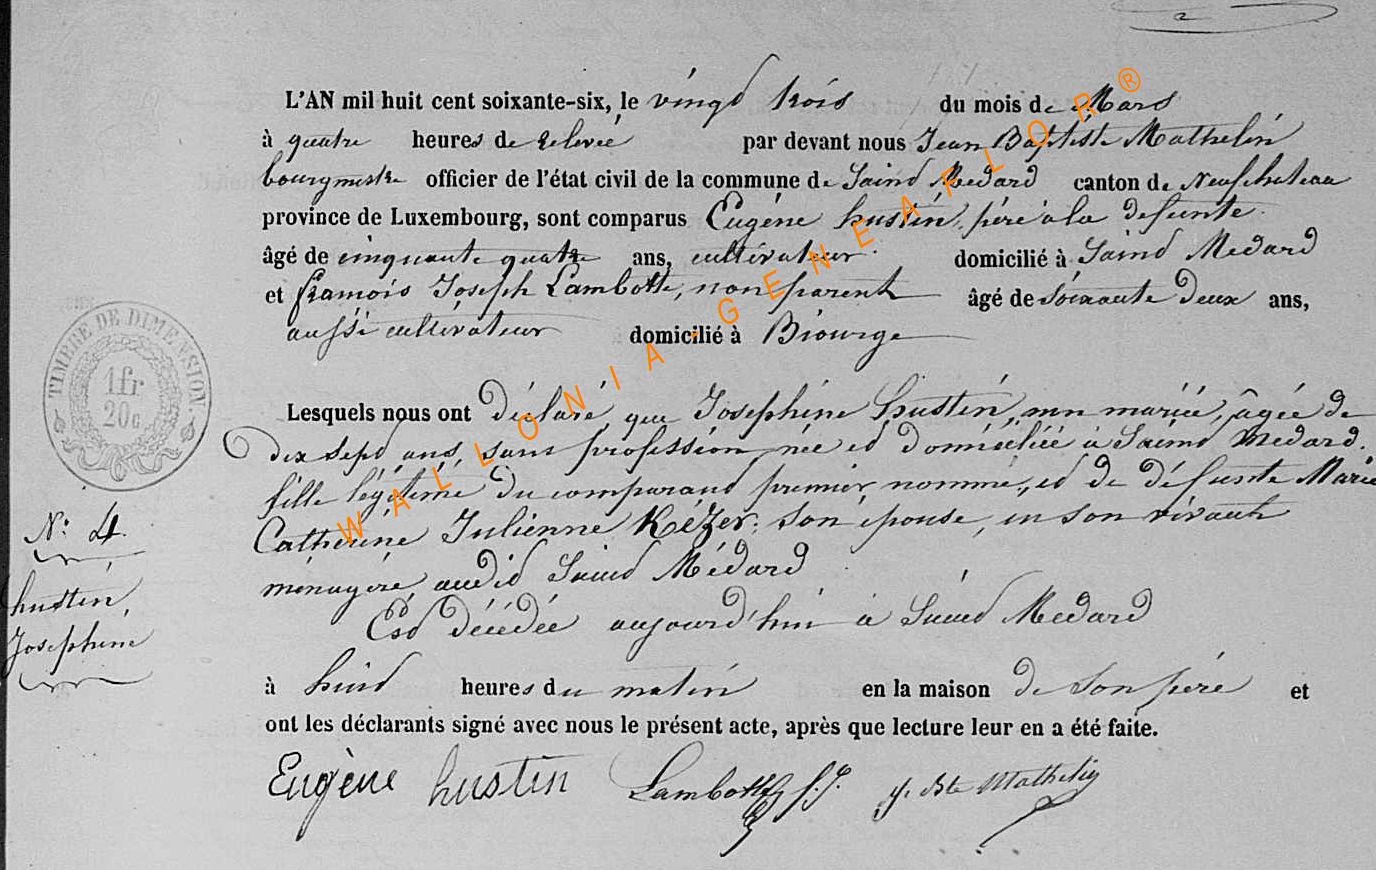 L'AN mil huit cent soixante-six, le vingt trois du mois de Mars
à quatre heures de relevée par devant nous Jean Baptiste Mathelin
bourgmestre officier de l'état civil de la commune de Saint Medard canton de Neufchateau
province de Luxembourg, sont comparus Eugène hustin, père à la defunte
âgé de cinquante quatre ans, cultivateur domicilié à Saint Medard
et françois Joseph Lambotte, non parent âgé de soixante deux ans,
aussi cultivateur domicilié à Biourge
TIMBRE DE DIMENSION.
1 fr
20 c
Lesquels nous ont déclaré que Josephine hustin, non mariée, âgée de
dix sept ans, sans profession, née et domiciliée à Saint Medard.
fille légitime du comparant premier nommé, et de défunte Marie
Catherine Julienne Kézer, son épouse, en son vivant
ménagère, audit Saint Médard
Est décédée aujourd'hui à Saint Medard
N° 4.
hustin,
Josephine
à huit heures du matin en la maison de son père et
ont les déclarants signé avec nous le présent acte, après que lecture leur en a été faite.
Eugène hustin Lambotte f. J. J. Bte Mathelin
WALLONIA-GENEAFLOR®